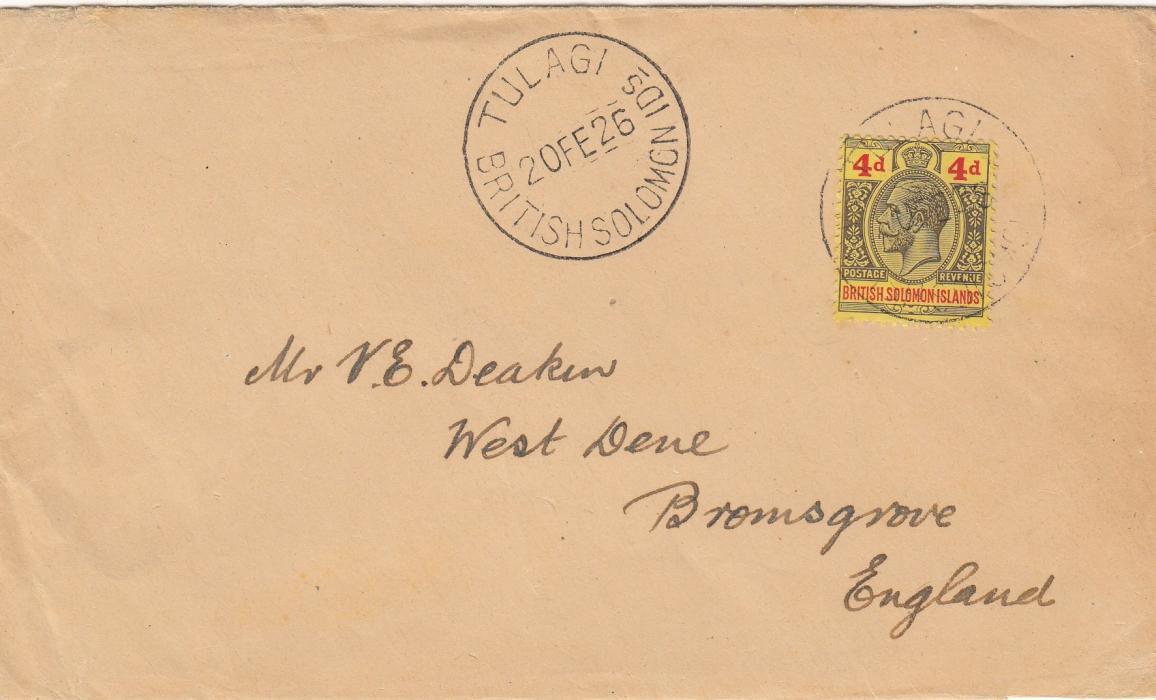 TULAGI
20FE26
BRITISH SOLOMON IDS
AGI
4d 4d
POSTAGE REVENUE
BRITISH SOLOMON ISLANDS
Mr V.E. Deakin
West Dene
Bromsgrove
England